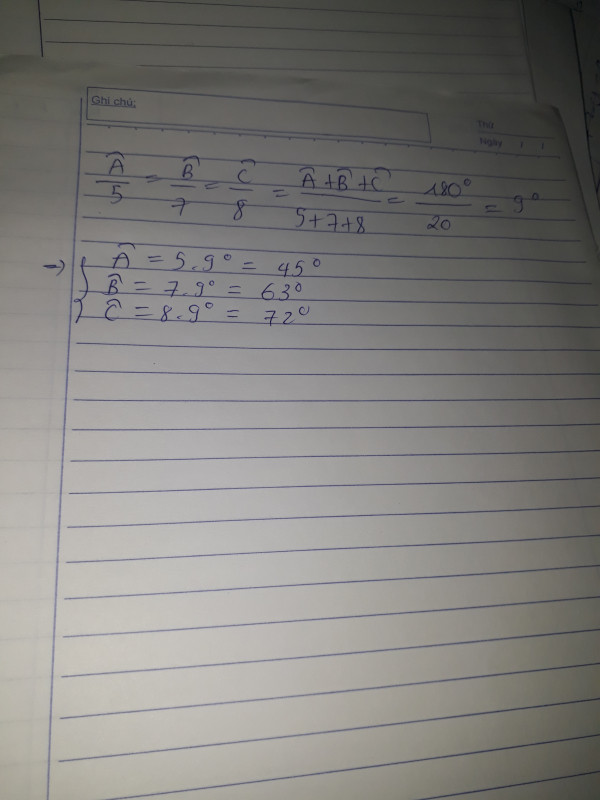 Ghi chú:
Thứ
Ngày / /
Â/5 = B̂/7 = Ĉ/8 = (Â + B̂ + Ĉ)/(5+7+8) = 180°/20 = 9°
=> { Â = 5.9° = 45°
B̂ = 7.9° = 63°
Ĉ = 8.9° = 72°